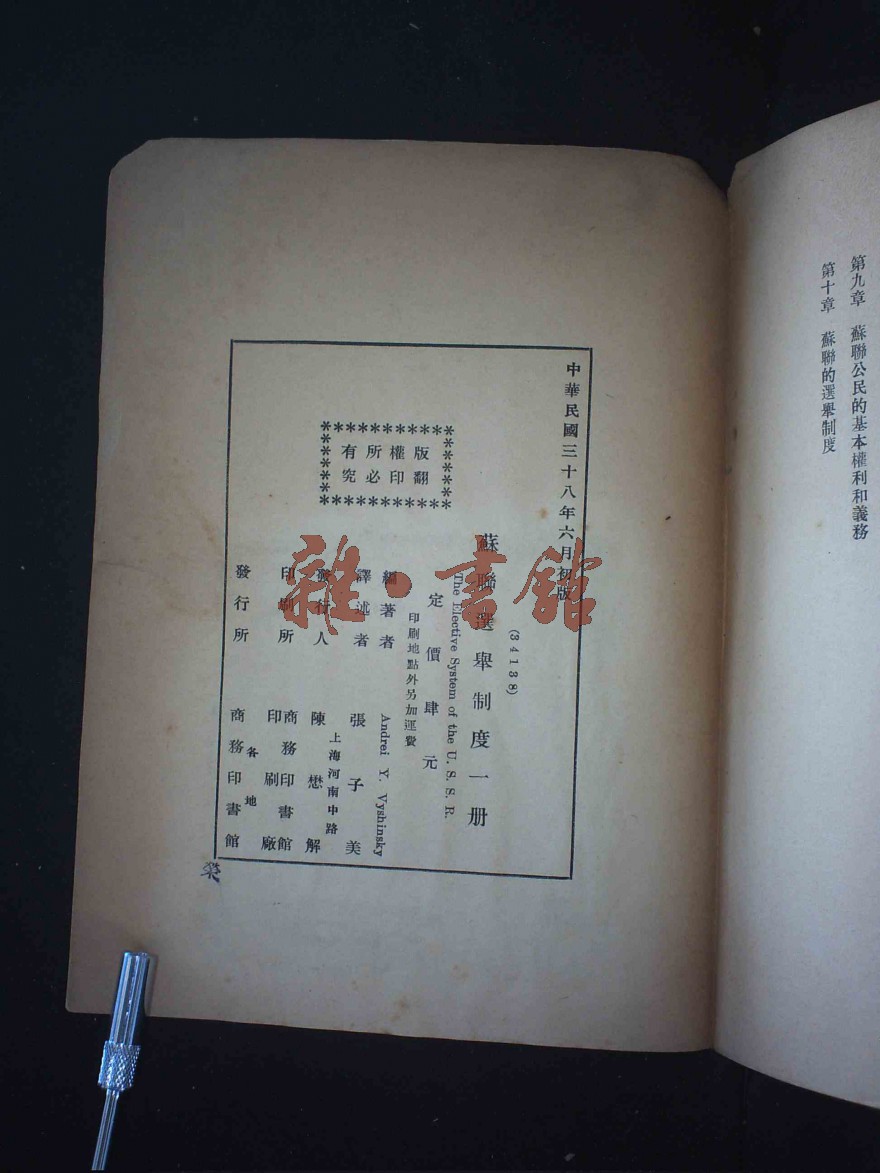 第九章　蘇聯公民的基本權利和義務
第十章　蘇聯的選舉制度
中華民國三十八年六月初版
(34138)
蘇聯選舉制度一册
The Elective System of the U. S. S. R.
定價肆元
印刷地點外另加運費
版權所有
翻印必究
編著者　Andrei Y. Vyshinsky
譯述者　張子美
上海河南中路
發行人　陳懋解
印刷所　商務印書館
印刷廠
發行所　商務印書館
各地
榮
雜·書館